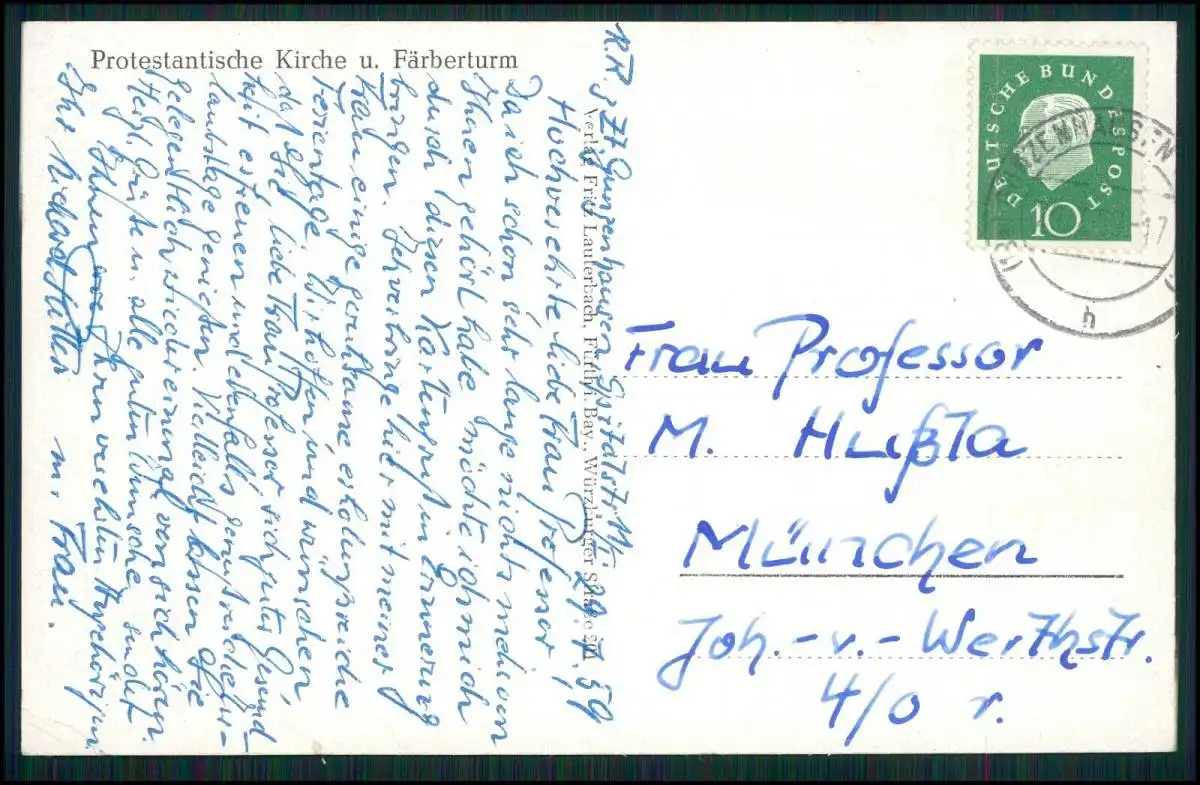 Protestantische Kirche u. Färberturm
z. Zt. Gunzenhausen, Spitalstr.
29.7.59
Hochverehrte liebe Frau Professor!
Da ich schon sehr lange nichts mehr von
Ihnen gehört habe, möchte ich mich
durch diesen Kartengruß in Erinnerung
bringen. Ich verbringe hier mit meiner
Frau einige geruhsame erholungsreiche
Ferientage. Wir hoffen und wünschen,
daß Sie, liebe Frau Professor sich guter Gesund-
heit erfreuen und ebenfalls genußreiche Ur-
laubstage genießen. Vielleicht lassen Sie
gelegentlich wieder einmal von sich hören.
Herzl. Grüße u. alle guten Wünsche sendet
Ihnen Ihren verehrten Angehörigen
Ihr Richard
m. Frau.
Verlag Fritz Lauterbach, Fürth i. Bay., Würzburger Straße
DEUTSCHE BUNDESPOST
10
GUNZENHAUSEN
h
Frau Professor
M. Hußla
München
Joh.-v.-Werthstr.
4/0 r.